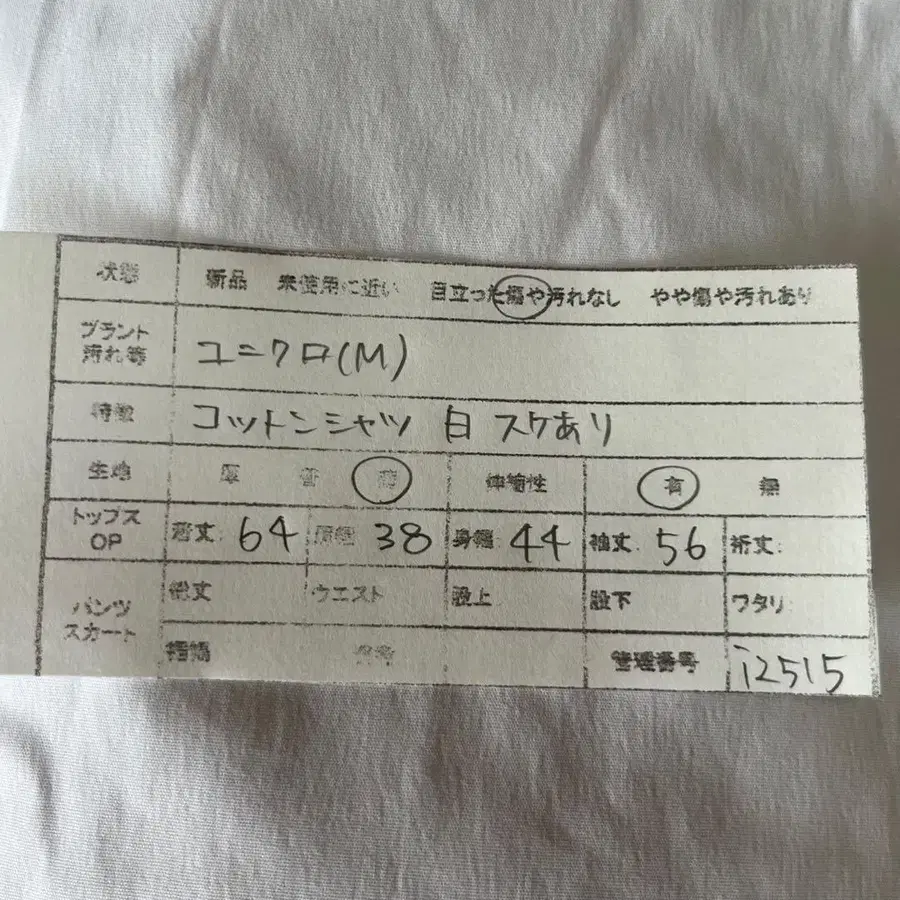 状態 新品 未使用に近い 目立った傷や汚れなし やや傷や汚れあり
ブランド
汚れ等 ユニクロ(M)
特徴 コットンシャツ 白 スケあり
生地 厚 普 薄 伸縮性 有 無
トップス
OP 着丈: 64 肩幅: 38 身幅: 44 袖丈: 56 裄丈:
パンツ
スカート 総丈 ウエスト 股上 股下 ワタリ
裾幅 管理番号 i2515